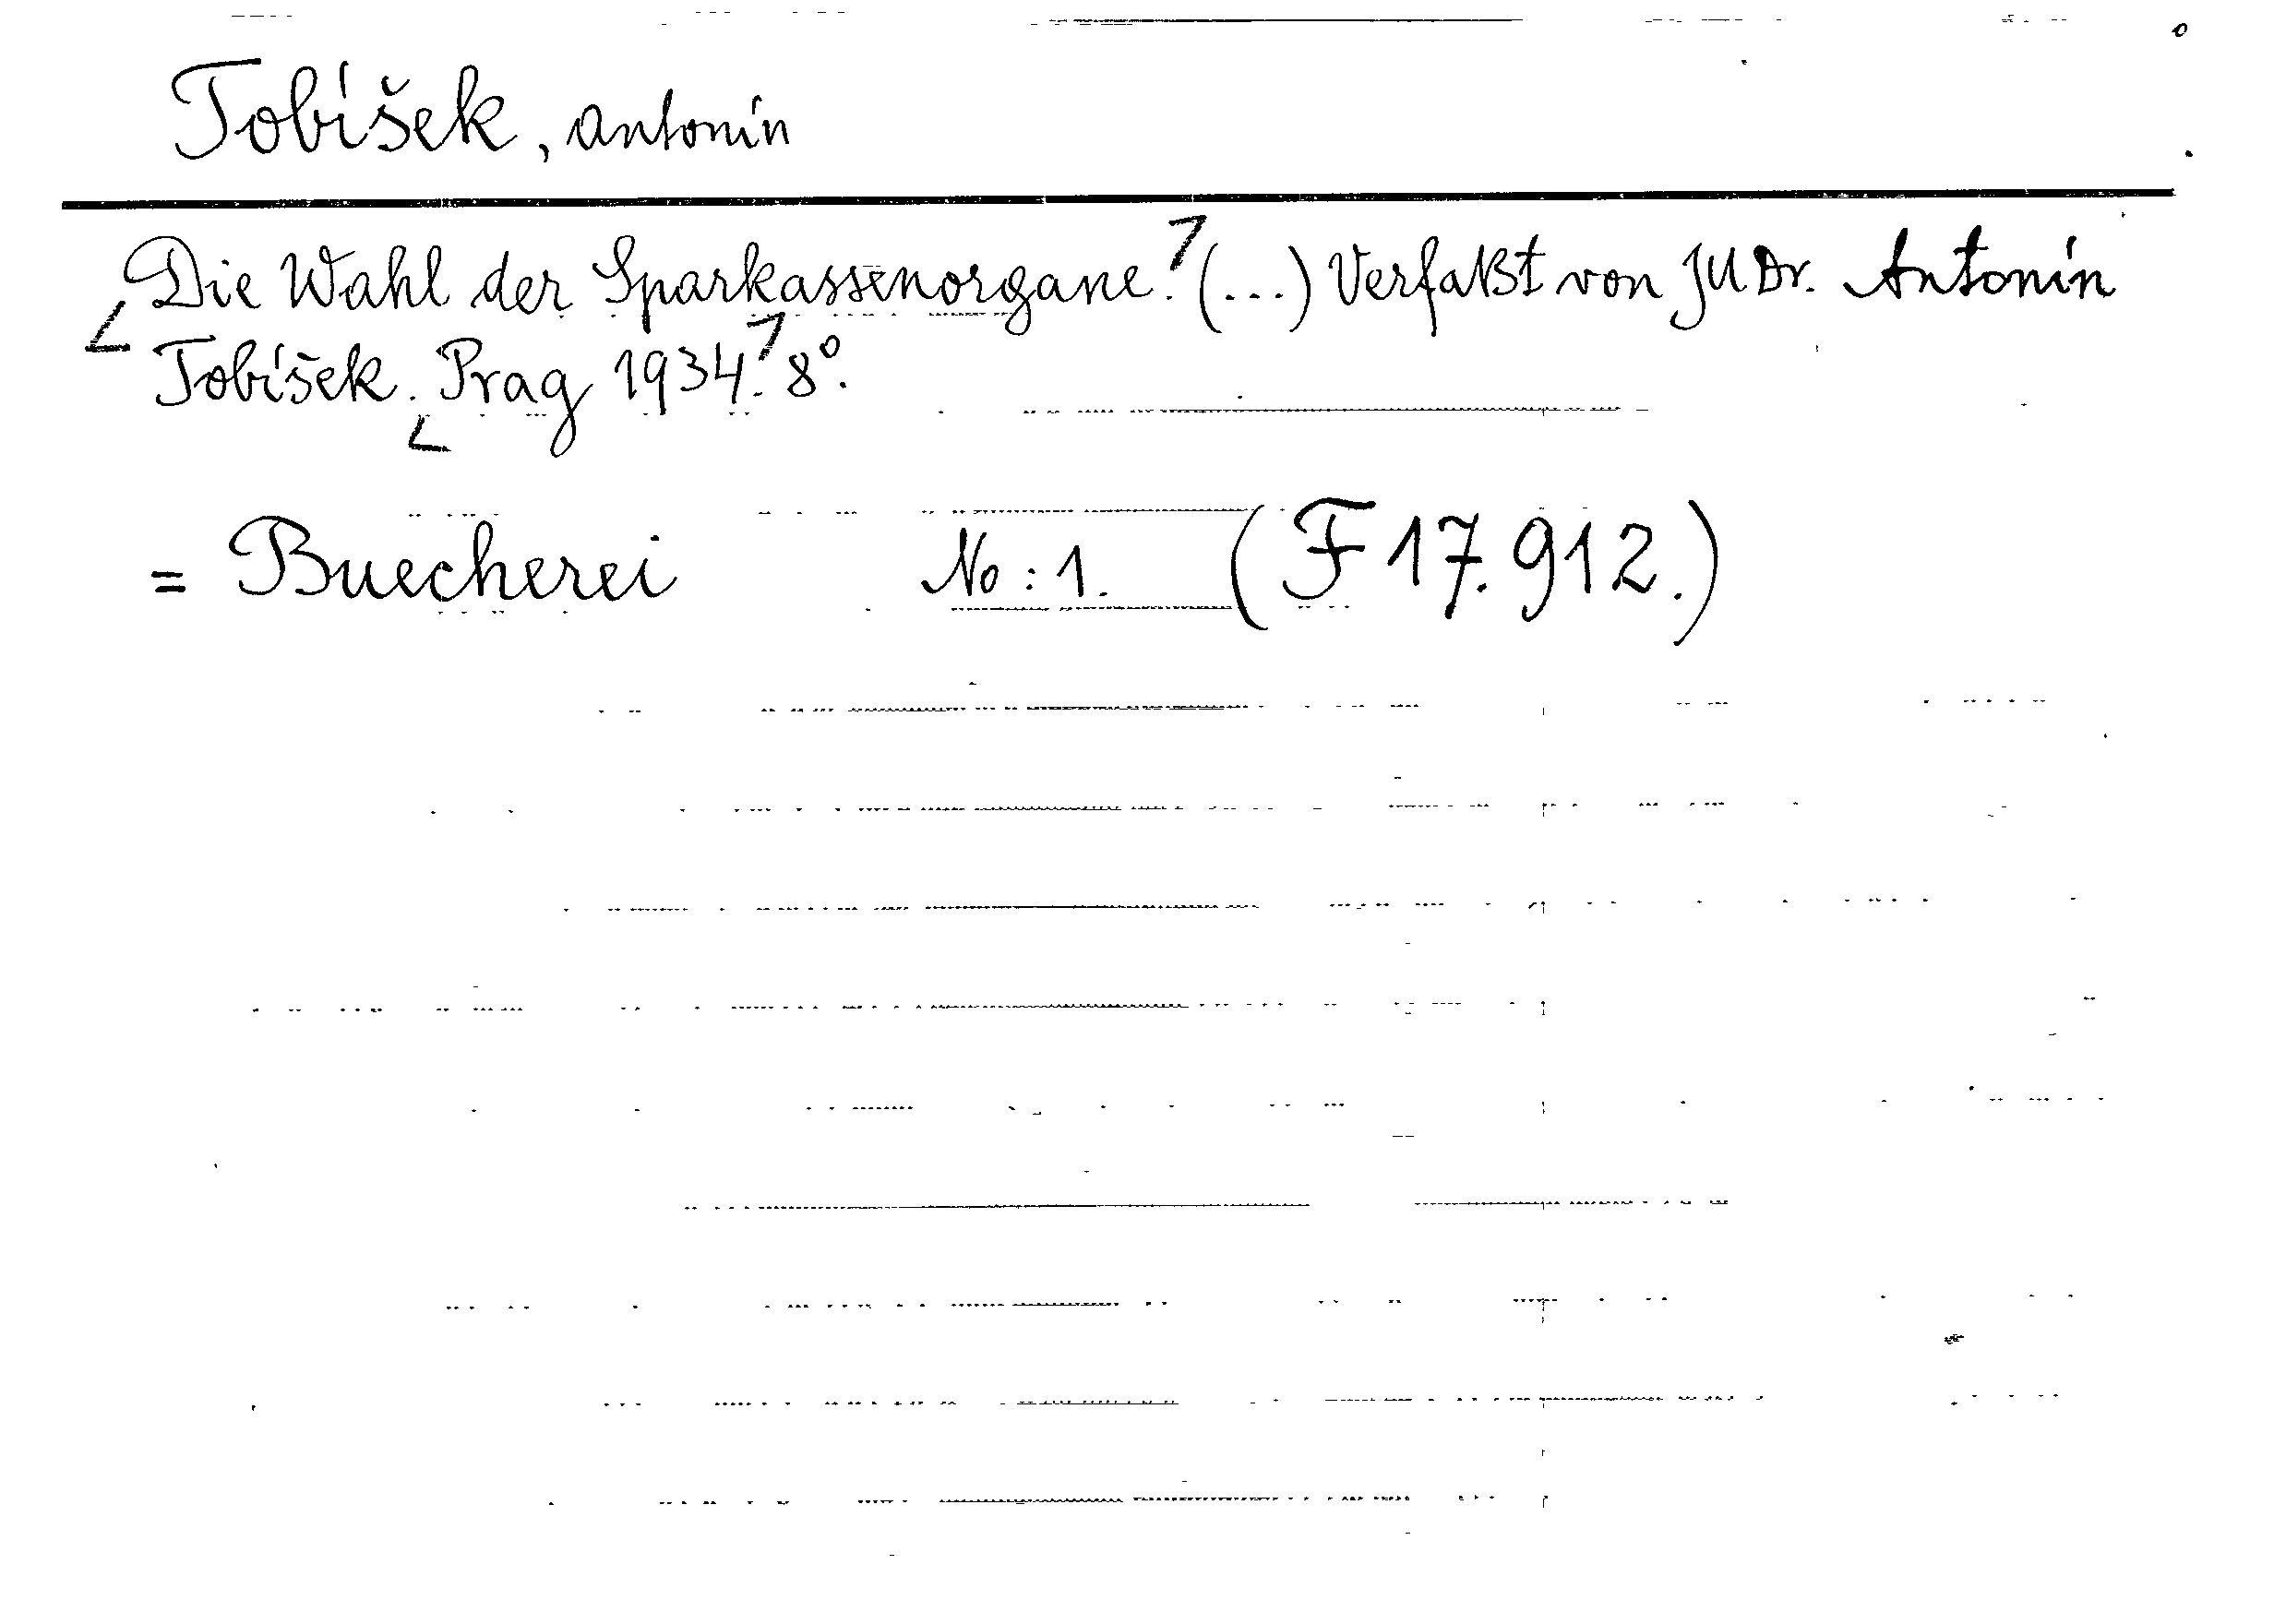 Tobíšek, Antonín
Die Wahl der Sparkassenorgane. (...) Verfaßt von JUDr. Antonín
Tobíšek. Prag 1934. 8°.
= Buecherei No: 1. (F 17.912.)